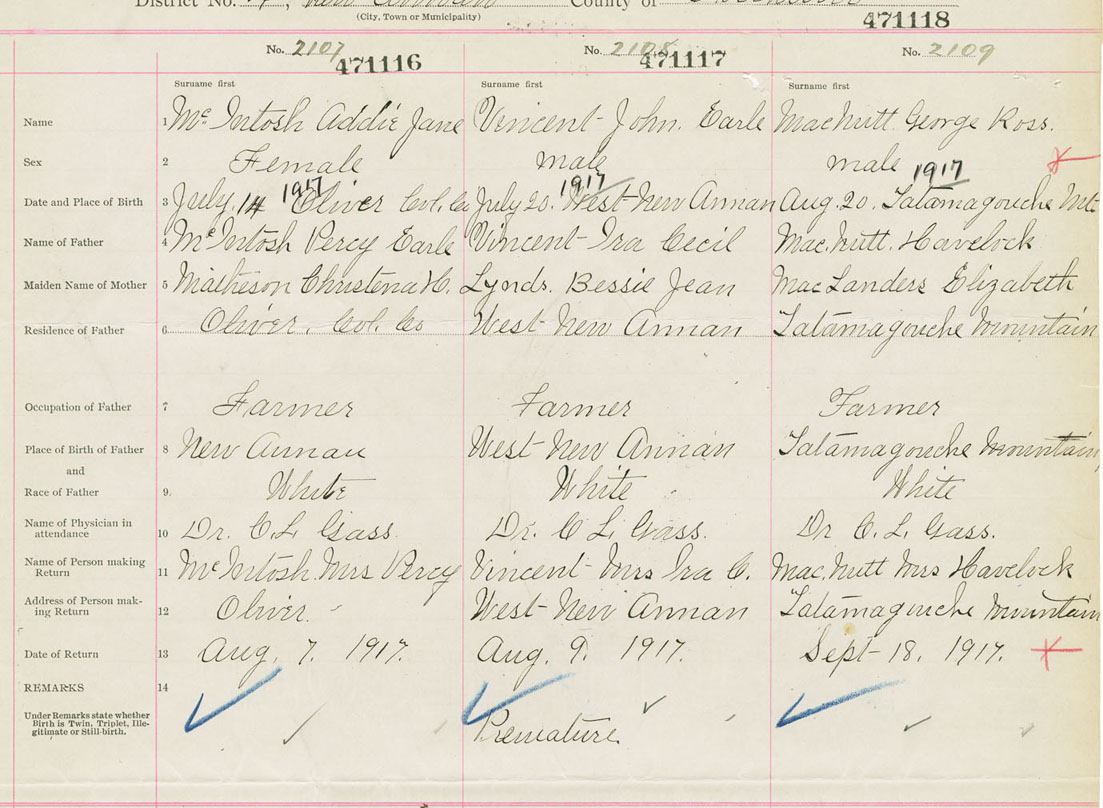 District No. County of
(City, Town or Municipality)
471118
No. 2107 No. 2108 No. 2109
471116 471117
Surname first Surname first Surname first
Name 1 Mc Intosh Addie Jane Vincent John. Earle MacNutt George Ross.
Sex 2 Female male male
1917 1917 1917
Date and Place of Birth 3 July. 14 Oliver Col. Co July 20. West New Annan Aug. 20. Tatamagouche Mt
Name of Father 4 Mc Intosh Percy Earle Vincent Ira Cecil Mac.Nutt. Havelock
Maiden Name of Mother 5 Matheson Christena H. Lynds. Bessie Jean MacLanders Elizabeth
Residence of Father 6 Oliver. Col. Co West New Annan Tatamagouche Mountain
Occupation of Father 7 Farmer Farmer Farmer
Place of Birth of Father 8 New Annan West New Annan Tatamagouche Mountain,
and
Race of Father 9 White White White
Name of Physician in
attendance 10 Dr. C.L. Gass. Dr. C L. Gass. Dr C. L. Gass.
Name of Person making
Return 11 Mc Intosh Mrs Percy Vincent Mrs Ira C. Mac.Nutt Mrs Havelock
Address of Person mak-
ing Return 12 Oliver. West New Annan Tatamagouche Mountain
Date of Return 13 Aug. 7. 1917. Aug. 9. 1917. Sept 18. 1917.
REMARKS 14
Under Remarks state whether
Birth is Twin, Triplet, Ille-
gitimate or Still-birth. Premature.